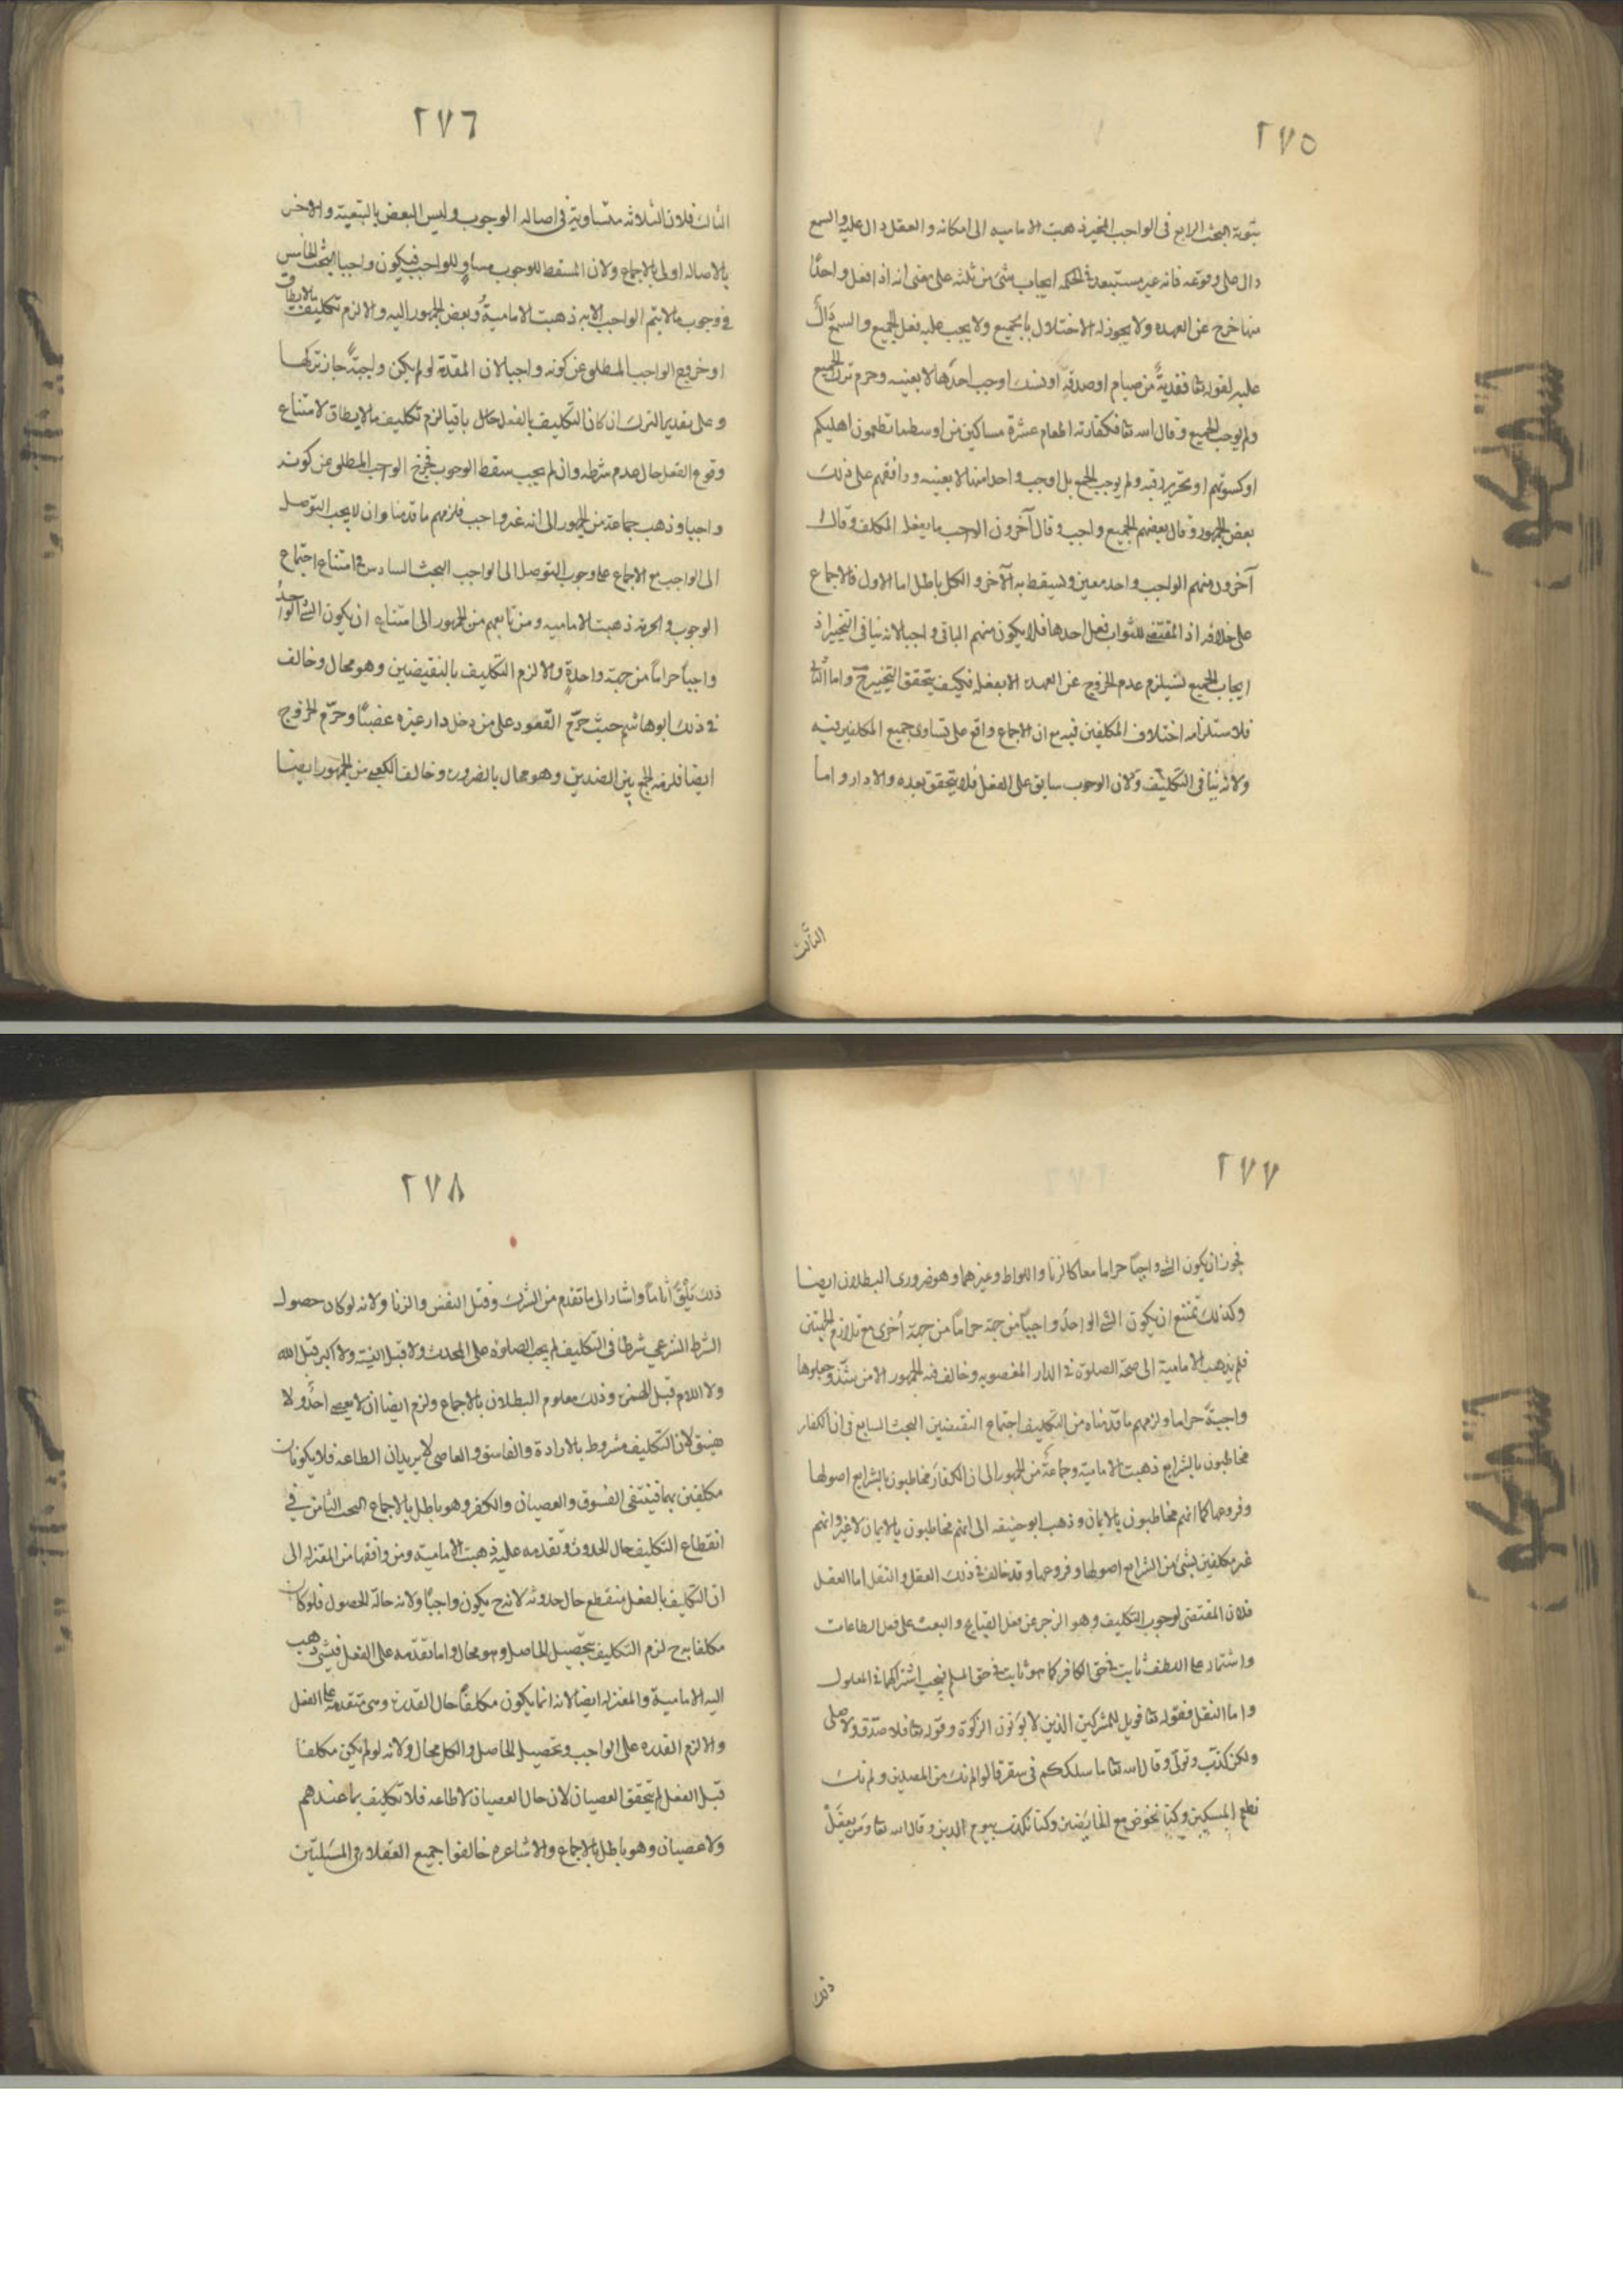 ٢٧٥
بتوبة البحث الرابع فى الواجب المخير ذهبت الاماميه الى امكانه و العقل دال عليه والسمع
دال على وقوعه فانه غير مستبعد فى الحكمه ايجاب شئ من ثلثه على معنى انه اذا فعل واحدًا
منها خرج عن العهده ولا يجوز له الاختلال بالجميع ولا يجب عليه فعل الجميع والسمع دالّ
عليه لقوله تعا ففديةٌ من صيام او صدقه او نسك اوجب احدها لا بعينه وحرم ترك الجميع
ولم يوجب الجميع وقال الله تعا فكفارته اطعام عشرة مساكين من اوسط ما تطعمون اهليكم
او كسوتهم او تحرير رقبه ولم يوجب الجميع بل اوجب واحدا منها لا بعينه ووافقهم على ذلك
بعض الجمهور وقال بعضهم الجميع واجب وقال آخرون الواجب ما يفعله المكلف وقال
آخرون منهم الواجب واحد معين ويسقط به الآخر والكل باطل اما الاول فالاجماع
على خلافه اذ المقتضى للثواب فعل احدها فلا يكون منهم الباقى واجبا لانه ينافى التخيير اذ
ايجاب الجميع يستلزم عدم الخروج عن العهده الا بفعله فكيف يتحقق التخيير ح واما الثانى
فلاستلزامه اختلاف المكلفين فيه مع ان الاجماع واقع على تساوى جميع المكلفين فيه
ولانه ينافى التكليف ولان الوجوب سابق على الفعل فلا يتحقق بعده والا دار واما
الثالث
٢٧٦
الثالث فلان الثلاثه متساوية فى اصاله الوجوب وليس البعض بالتبعية والاخر
بالاصاله اولى بالاجماع ولان المسقط للوجوب مساوٍ للواجب فيكون واجبا البحث الخامس
فى وجوب ما لا يتم الواجب الا به ذهبت الاماميةُ وبعض الجمهور اليه والا لزم تكليف ما لا يطاق
او خروج الواجب المطلق عن كونه واجبا لان المقدمة لو لم يكن واجبةً جاز تركها
وعلى تقدير الترك ان كان التكليف بالفعل حال باقيا لزم تكليف ما لا يطاق لامتناع
وقوع الفعل حال عدم شرطه وان لم يجب سقط الوجوب فخرج الواجب المطلق عن كونه
واجبا وذهب جماعة من الجمهور الى انه غير واجب فلزمهم ما قدمنا وان لا يجب التوصل
الى الواجب مع الاجماع على وجوب التوصل الى الواجب البحث السادس فى امتناع اجتماع
الوجوب و الحرمة ذهبت الاماميه ومن تابعهم من الجمهور الى امتناع ان يكون الشئ الواحدُ
واجباً حراماً من جهة واحدةٍ والا لزم التكليف بالنقيضين وهو محال وخالف
فى ذلك ابو هاشم حيث حرّم القعود على من دخل دار غيره غصبًا وحرّم الخروج
ايضا فلزمه الجمع بين الضدين وهو محال بالضروره وخالف الكعبى من الجمهور ايضا
٢٧٧
فجوز ان يكون الشئ واجبًا حراما معا كالزنا واللواط وغيرهما وهو ضرورى البطلان ايضا
وكذلك يمتنع ان يكون الشئ الواحد واجباً من جهة حراماً من جهة أخرى مع تلازم الجهتين
فلم يذهب الامامية الى صحة الصلوة فى الدار المغصوبه وخالف فيه الجمهور الا من شذّ وجعلوها
واجبةً حراما ولزمهم ما قدمناه من التكليف اجتماع النقيضين البحث السابع فى ان الكفار
مخاطبون بالشرايع ذهبت الامامية وجماعة من الجمهور الى ان الكفار مخاطبون بالشرايع اصولها
وفروعها كما انهم مخاطبون بالايمان وذهب ابو حنيفه الى انهم مخاطبون بالايمان لا غير وانهم
غير مكلفين بشئ من الشرايع اصولها وفروعها وقد خالف فى ذلك العقل والنقل اما العقل
فلان المقتضى لوجوب التكليف وهو الزجر عن فعل القبايح والبعث على فعل الطاعات
واشتماله على اللطف ثابت فى حق الكافر كما هو ثابت فى حق المسلم فيجب اشتراكهما فى المعلول
واما النقل فقوله تعا فويل للمشركين الذين لا يؤتون الزكوة وقوله تعا فلا صدّق ولا صلى
ولكن كذّب وتولى وقال الله تعا ما سلككم فى سقر قالوا لم نك من المصلين ولم نك
نطعم المسكين وكنا نخوض مع الخايضين وكنا نكذب بيوم الدين وقال الله تعا ومن يفعَلْ
ذلك
٢٧٨
ذلك يَلْقَ أثاماً واشار الى ما تقدم من الشرك وقتل النفس والزنا ولانه لو كان حصول
الشرط الشرعي شرطا فى التكليف لم يجب الصلوة على المحدث ولا قبل النية ولا اكبر قبل الله
ولا اللام قبل الهمزه وذلك معلوم البطلان بالاجماع ولزم ايضا ان لا يعصى احدٌ ولا
يفسق لان التكليف مشروط بالارادة والفاسق و العاصى لا يريدان الطاعه فلا يكونان
مكلفين بها فينتفى الفسوق والعصيان والكفر وهو باطل بالاجماع البحث الثامن في
انقطاع التكليف حال الحدوث وتقدمه عليه ذهبت الامامية ومن وافقها من المعتزله الى
ان التكليف بالفعل منقطع حال حدوثه لانه ح يكون واجبًا ولانه حالة الحصول فلو كان
مكلفا به ح لزم التكليف بتحصيل الحاصل وهو محال واما تقدّمه على الفعل فشئ ذهب
اليه الامامية والمعتزله ايضا لانه انما يكون مكلفاً حال القدره وهى متقدمه على الفعل
والا لزم القدره على الواجب وتحصيل الحاصل والكل محال ولانه لو لم يكن مكلفا
قبل الفعل لم يتحقق العصيان لان حال العصيان لا طاعه فلا تكليف بها عندهم
ولا عصيان وهو باطل بالاجماع والاشاعره خالفوا جميع العقلا فى المسئلتين